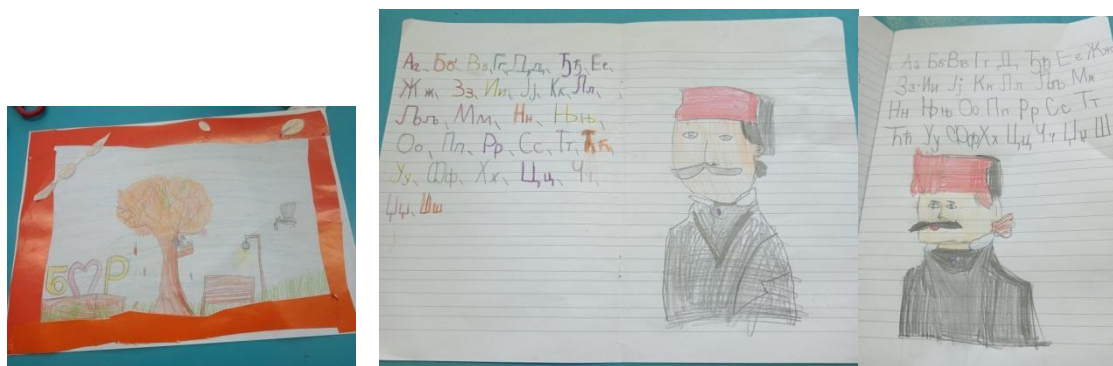 Б Р
Аа, Бб, Вв, Гг, Дд, Ђђ, Ее,
Жж, Зз, Ии, Јј, Кк, Лл,
Љљ, Мм, Нн, Њњ,
Оо, Пп, Рр, Сс, Тт, Ћћ,
Уу, Фф, Хх, Цц, Чч,
Џџ, Шш
Аа Бб Вв Гг Дд Ђђ Ее Жж
Зз Ии Јј Кк Лл Љљ Мм
Нн Њњ Оо Пп Рр Сс Тт
Ћћ Уу Фф Хх Цц Чч Џџ Ш